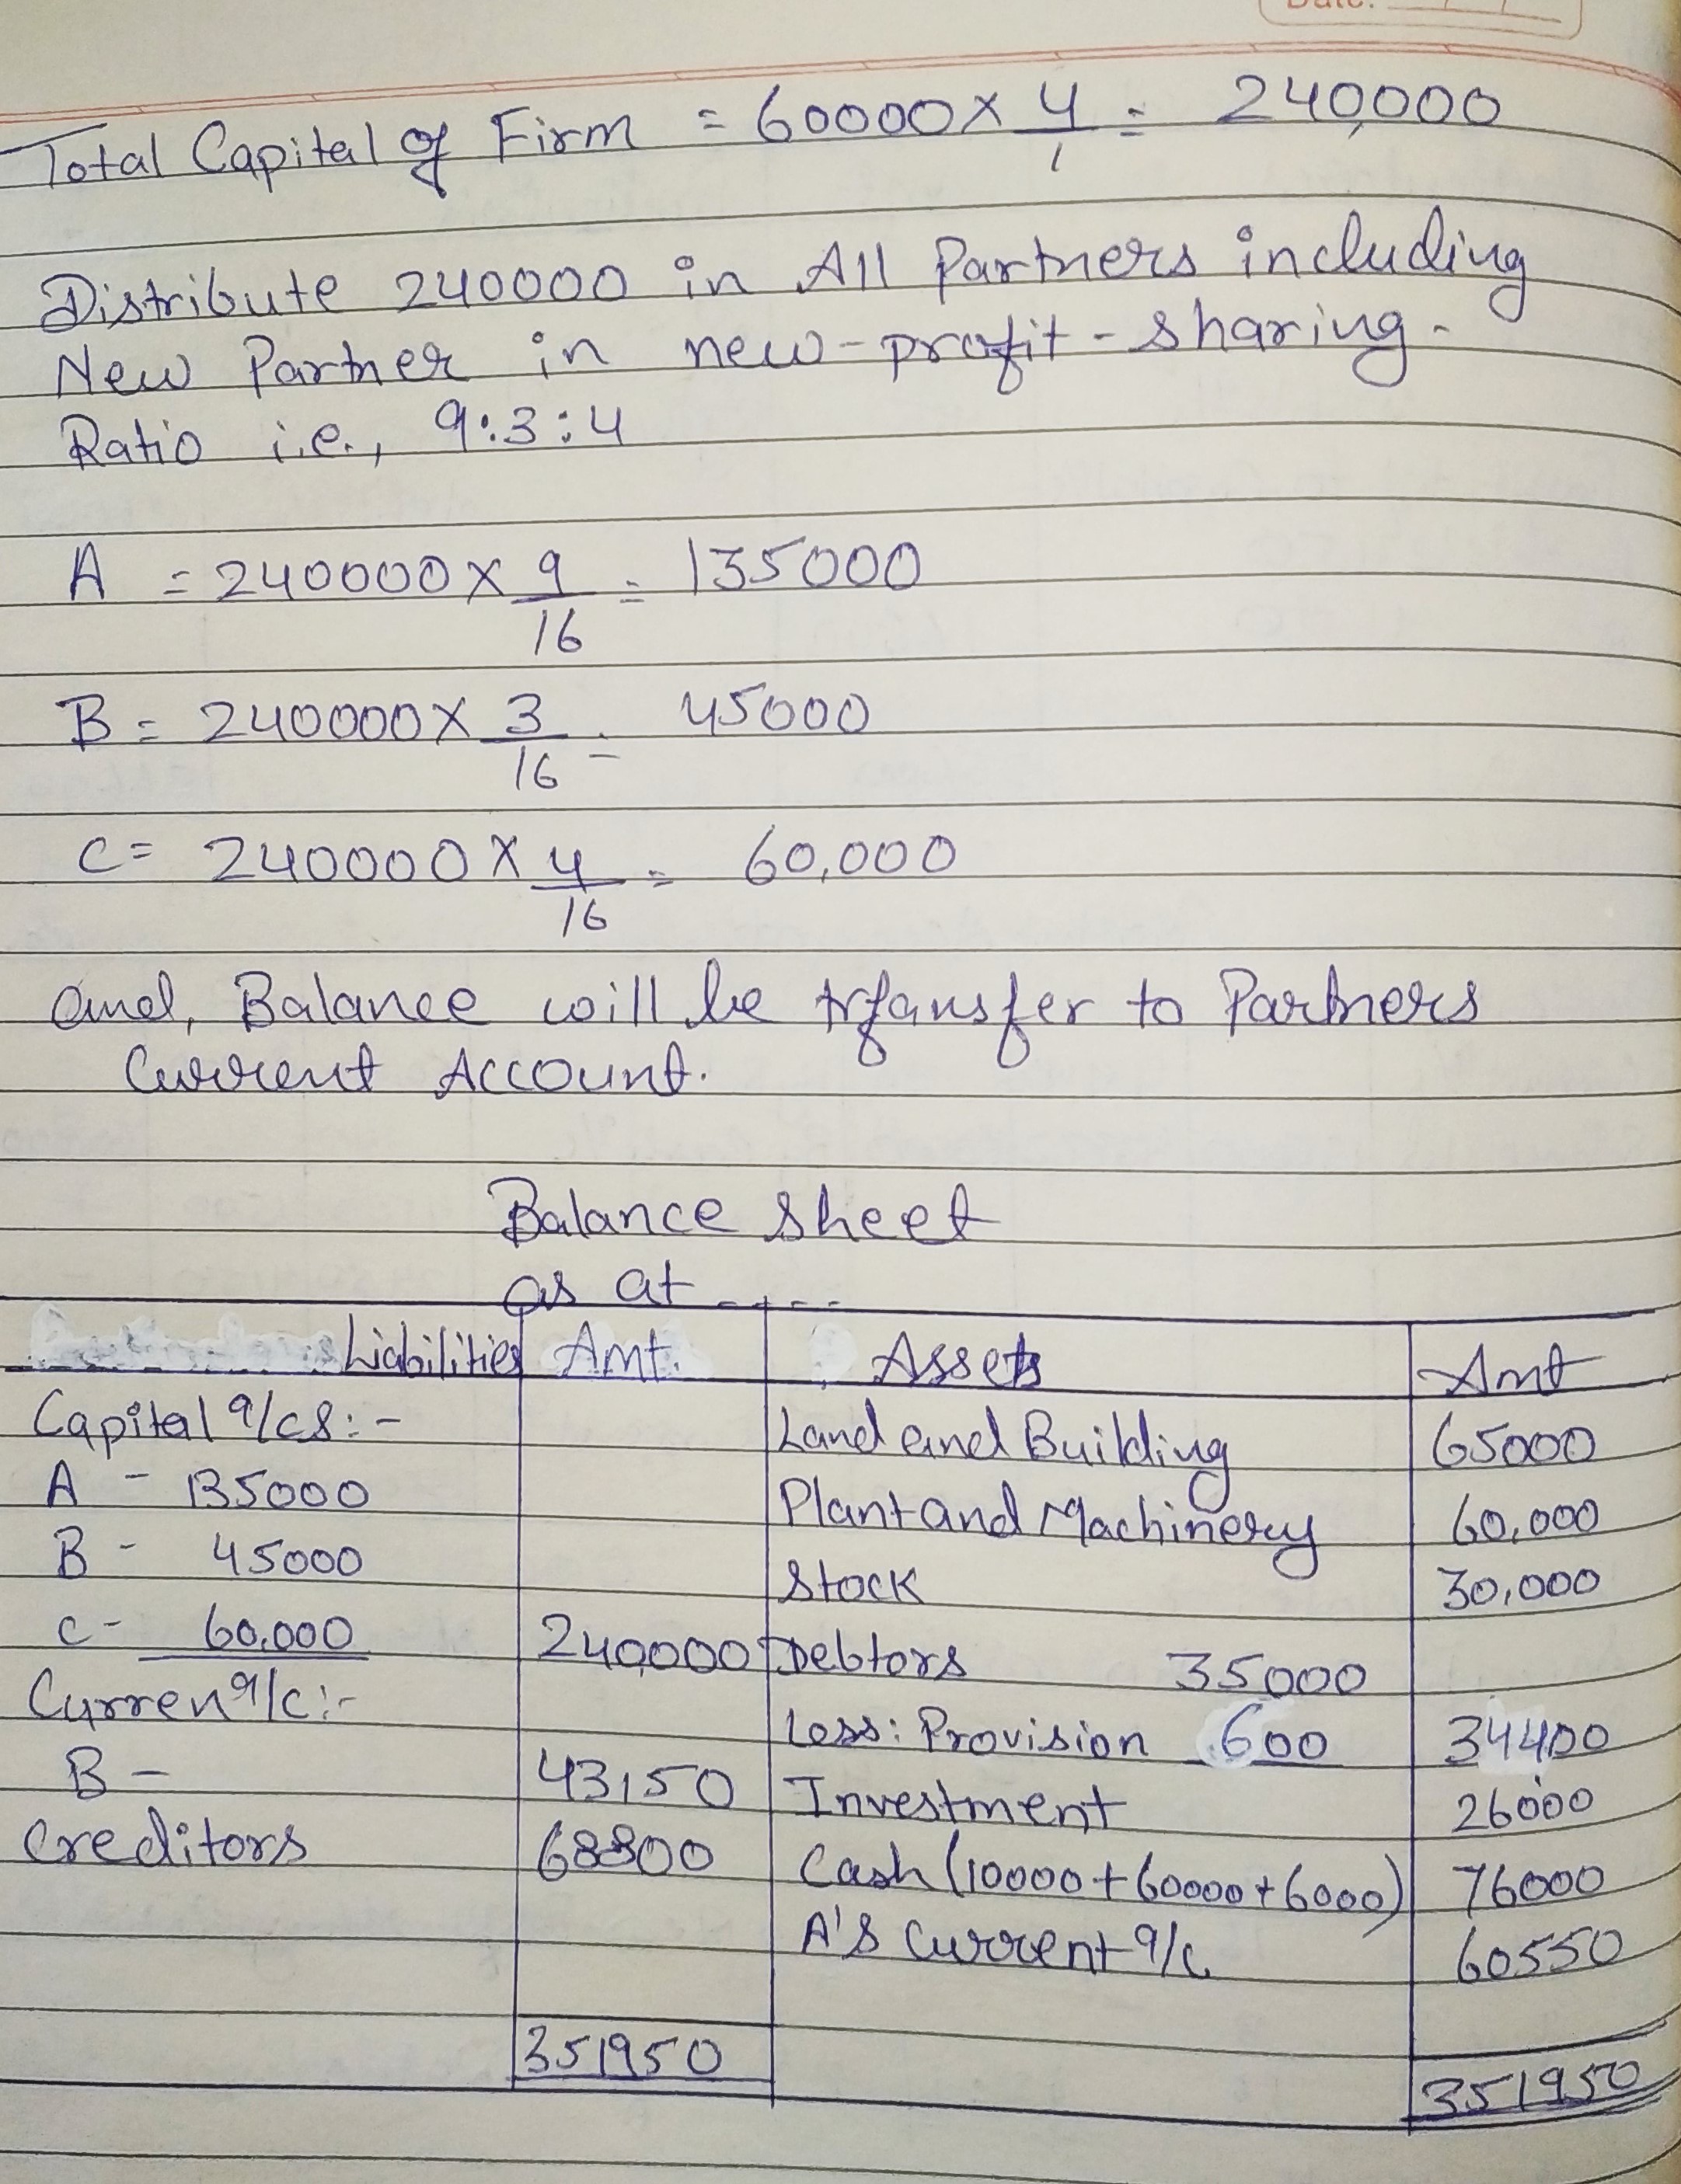 Date:
Total Capital of Firm = 60000 × 4/1 = 240,000
Distribute 240000 in All Partners including
New Partner in new-profit-sharing-
Ratio i.e., 9:3:4
A = 240000 × 9/16 = 135000
B = 240000 × 3/16 = 45000
C = 240000 × 4/16 = 60,000
and, Balance will be trfansfer to Partners
Current Account.
Balance Sheet
as at -----
Liabilities Amt. Assets Amt
Capital a/cs:- Land and Building 65000
A - 135000 Plant and Machinery 60,000
B - 45000 Stock 30,000
C- 60,000 240,000 Debtors 35000
Curren a/c:- Less: Provision 600 34400
B - 43150 Investment 26000
Creditors 68800 Cash (10000+60000+6000) 76000
A's Current a/c 60550
351950 351950